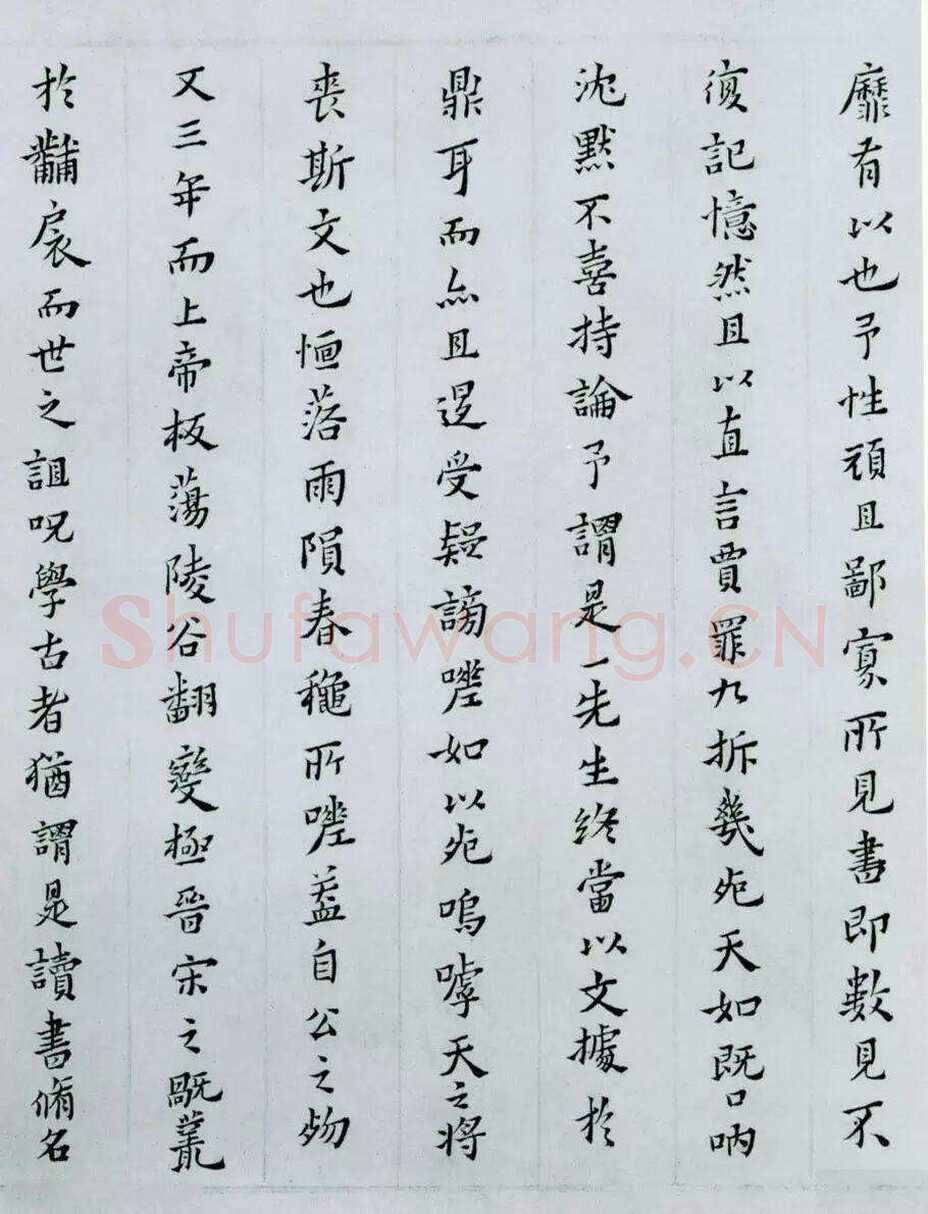 靡有以也予性頑且鄙寡所見書即數見不
復記憶然且以直言賈罪九折幾死天如既口吶
沈默不喜持論予謂是一先生終當以文據於
鼎耳而亦且遅受疑謗嗟如以死嗚嘑天之將
喪斯文也恒落雨隕春穐所嗟蓋自公之歾
又三年而上帝板蕩陵谷翻變極晉宋之
於黼扆而世之詛呪學古者猶謂是讀書脩名
Shufawang.CN